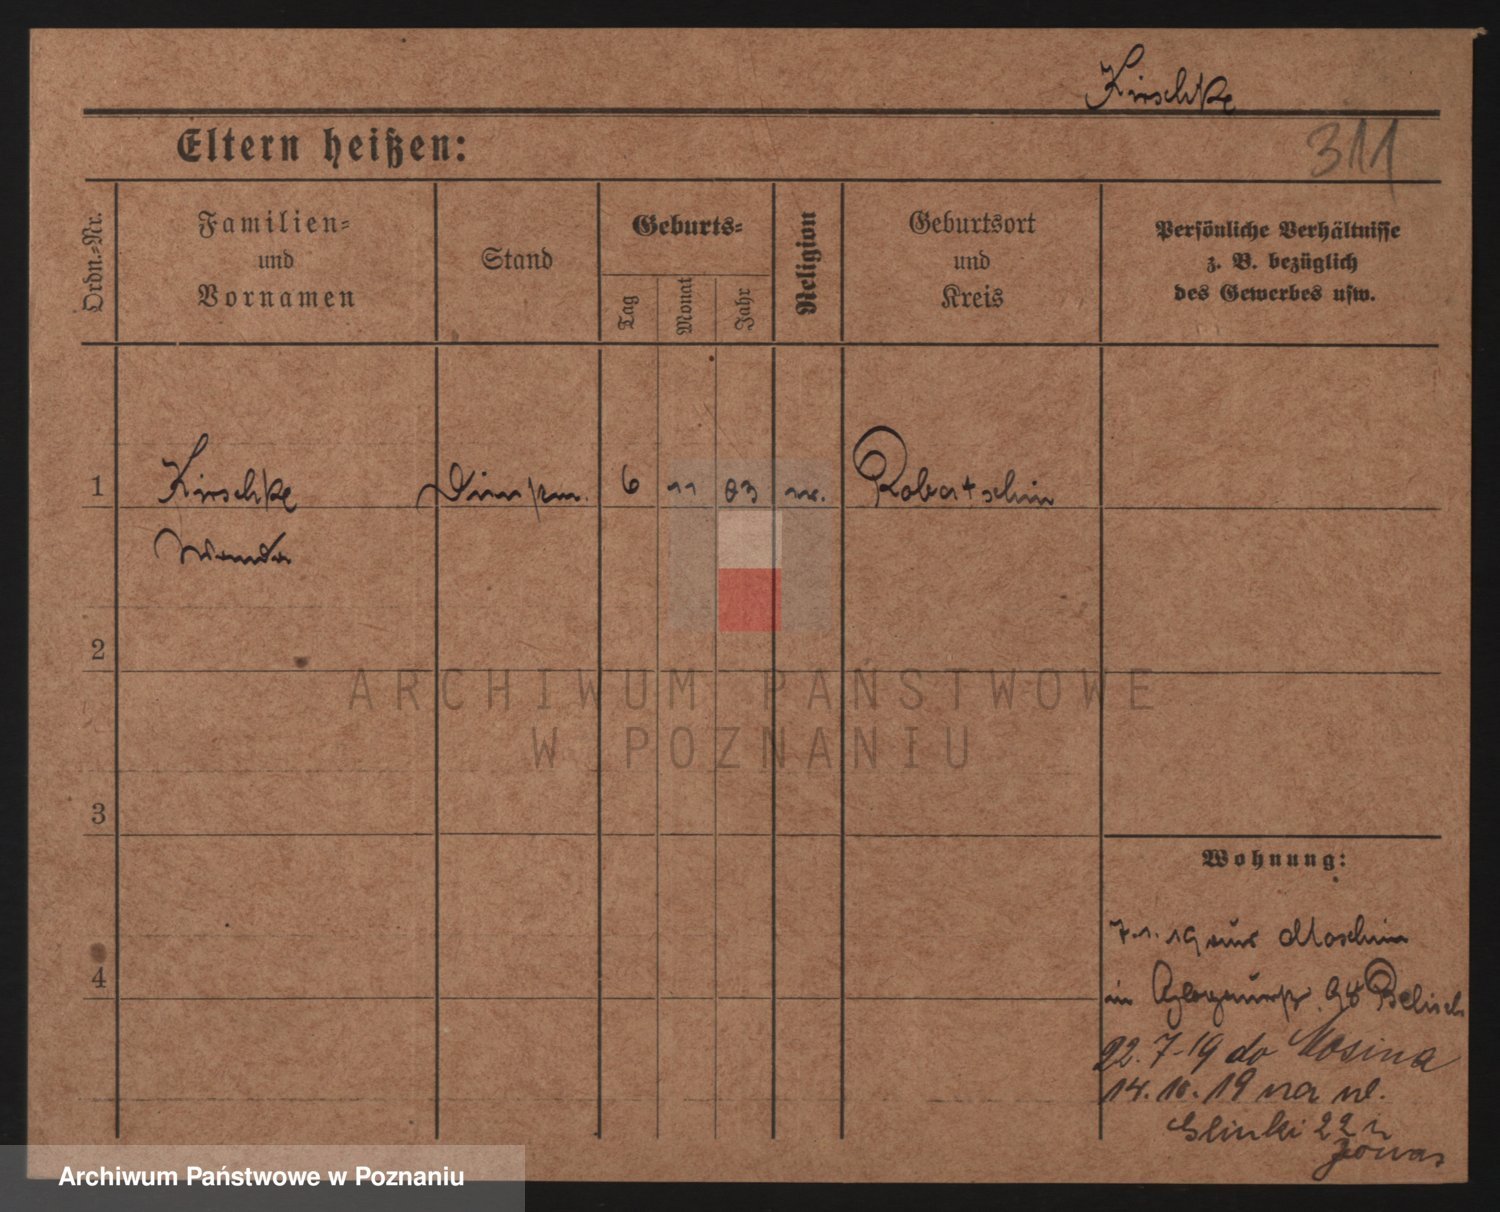 Kirschke
311
Eltern heißen:
Ordn.-Nr.
Familien-
und
Vornamen
Stand
Geburts-
Tag
Monat
Jahr
Religion
Geburtsort
und
Kreis
Persönliche Verhältnisse
z. B. bezüglich
des Gewerbes usw.
1 Kirschke 6 11 83 Robertschin
Wanda
2
3
4
Wohnung:
7.1.19 aus Moschin
in
22.7-19 do Mosina
14.10.19 na ul.
Glinki 22 i
Jonas
ARCHIWUM PAŃSTWOWE
W POZNANIU
Archiwum Państwowe w Poznaniu